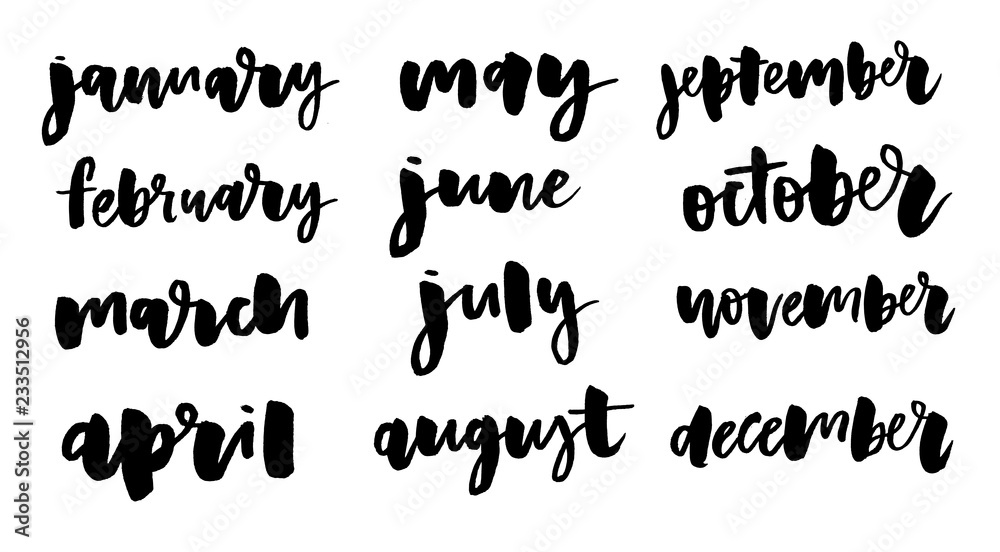 january
february
march
april
may
june
july
august
september
october
november
december
Adobe Stock | #233512956